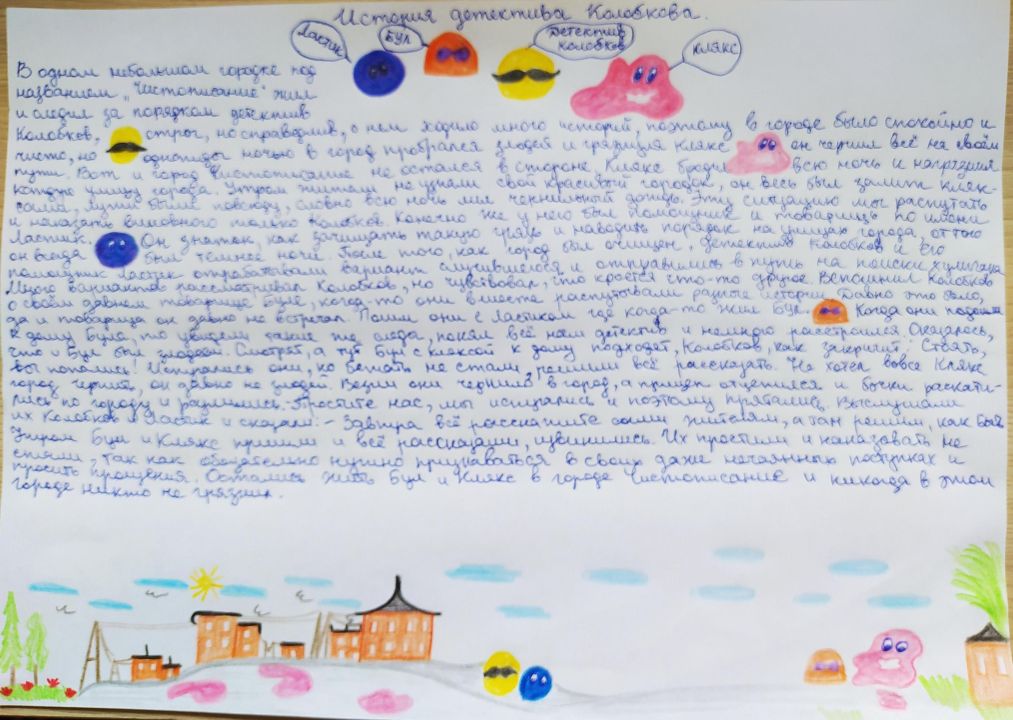 История детектива Колобкова.
Ластик
БУЛ
Детектив Колобков
КЛЯКС
В одном небольшом городке под
названием „Чистописание" жил
и следил за порядком детектив
Колобков, строг, но справедлив, о нем ходило много историй, поэтому в городе было спокойно и
чисто, но однажды ночью в город пробрался злодей и грязнуля Клякс он чернил всё на своём
пути. Вот и город Чистописание не остался в стороне, Клякс бродил всю ночь и напрязнил
каждую улицу города. Утром жители не узнали свой красивый городок, он весь был залит кляк-
сами, лужи были повсюду, словно всю ночь лил чернильный дождь. Эту ситуацию мог распутать
и наказать виновного только Колобков. Конечно же у него был помощник и товарищ по имени
Ластик. Он знаток, как зачищать такую грязь и наводить порядок на улицах города, оттого
он всегда был темнее ночи. После того, как город был очищен, детектив Колобков и его
помощник Ластик отрабатывали вариант случившегося и отправились в путь на поиски хулигана
Много вариантов рассматривал Колобков, но чувствовал, что кроется что-то другое. Вспомнил Колобков
о своём давнем товарище Буле, когда-то они вместе распутывали разные истории. Давно это было,
да и товарища он давно не встречал. Пошли они с Ластиком где когда-то жил Бул. Когда они подошли
к дому Була, то увидели такие же следы, понял всё наш детектив и немного расстроился. Оказалось,
что и Бул был злодеем. Смотрят, а тут Бул с кляксой к дому подходят, Колобков, как закричит: Стоять,
вы попались! Испугались они, но бежать не стали, решили всё рассказать. Не хотел вовсе Клякс
город чернить, он давно не злодей. Везли они чернила в город, а прицеп отцепился и бочки раскати-
лись по городу и разлились. Простите нас, мы испугались и поэтому прятались. Выслушали
их Колобков и Ластик и сказали: - Завтра всё расскажите сами жителям, а там решим, как быть
Утром Бул и Клякс пришли и всё рассказали, извинились. Их простили и наказывать не
стали, так как обязательно нужно признаваться в своих даже нечаянных поступках и
просить прощения. Остались жить Бул и Клякс в городе Чистописание и никогда в этом
городе никто не грязнил.